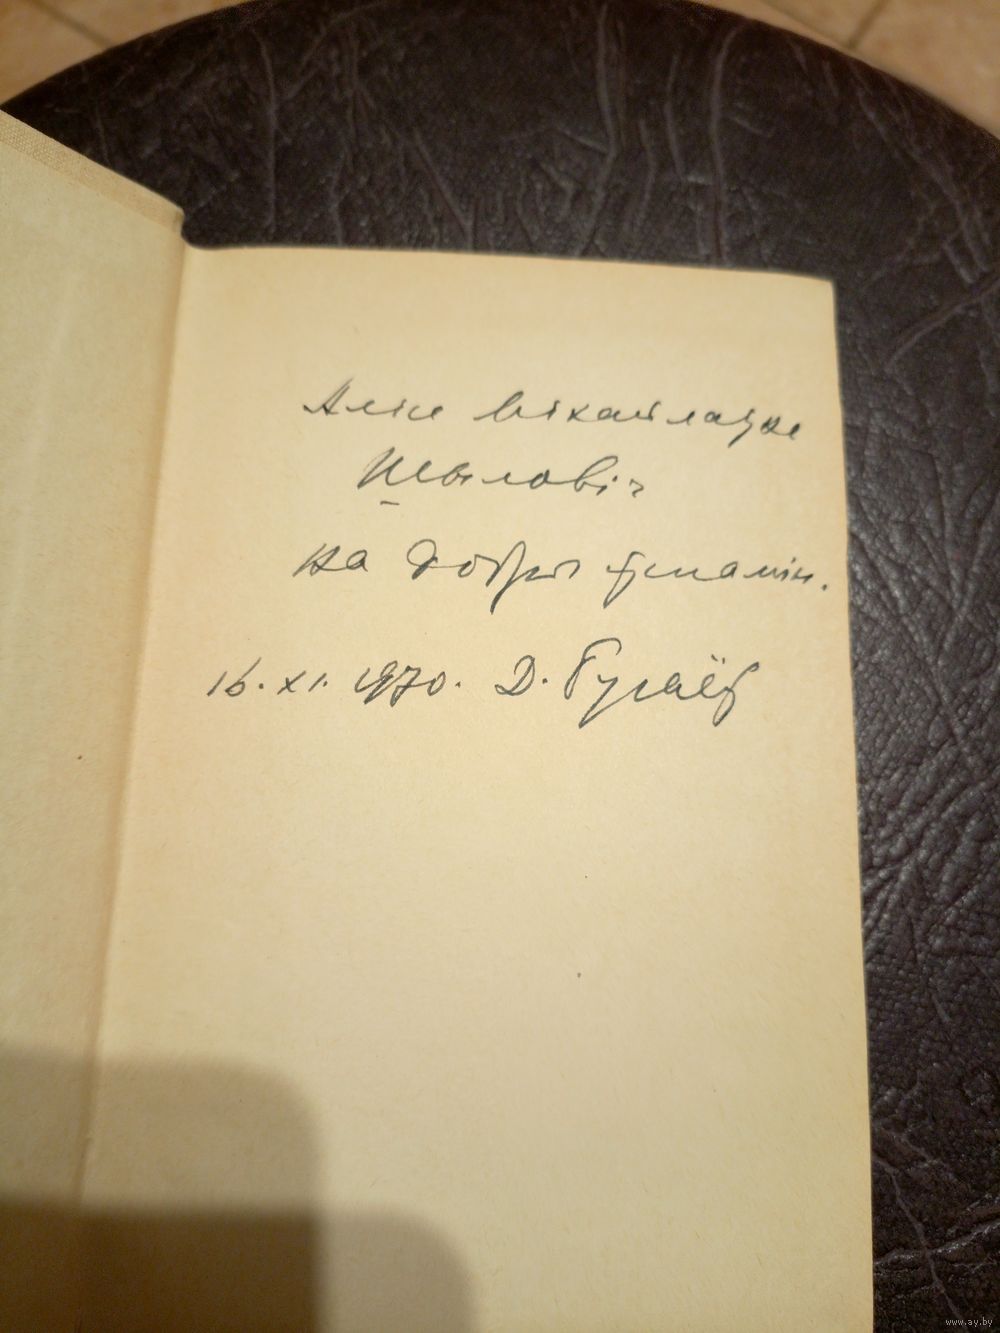 Алісе Міхайлаўне
Шыловіч
на добры ўспамін.
16. XI. 1970. Д. Бугаёў
www.ay.by